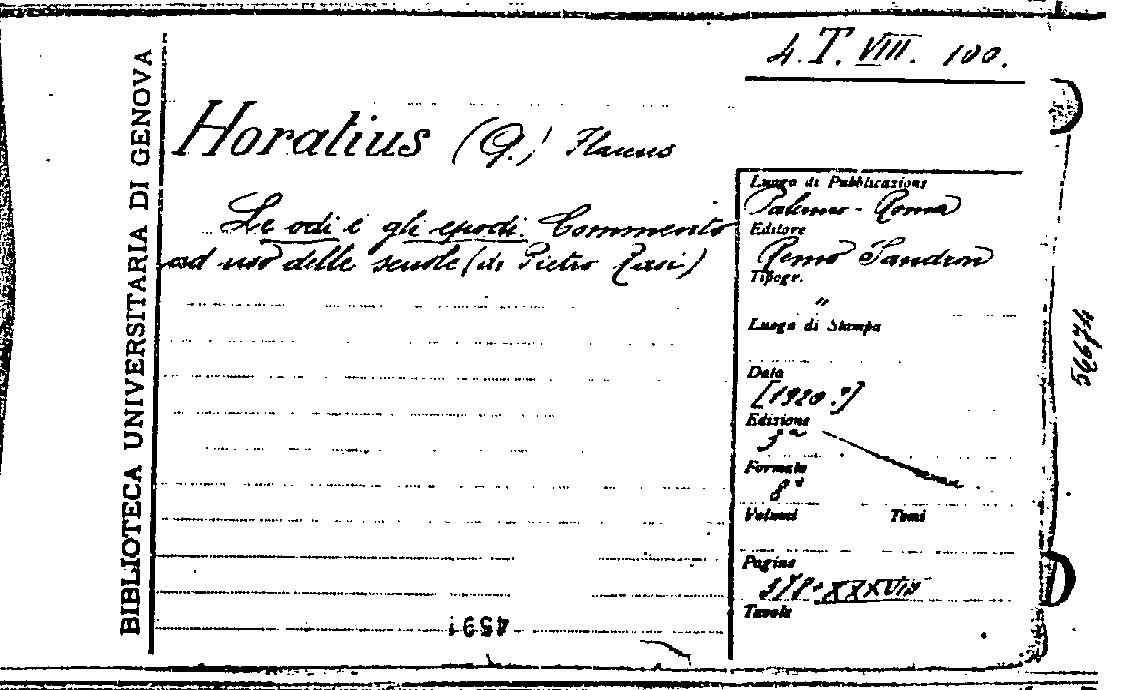 4. T. VIII. 100.
BIBLIOTECA UNIVERSITARIA DI GENOVA
Horatius (Q.) Flaccus
Le odi e gli epodi. Commento
ad uso delle scuole (di Pietro Rasi)
Luogo di Pubblicazione
Palermo - Roma
Editore
Remo Sandron
Tipogr.
"
Luogo di Stampa
Data
[1920?]
Edizione
3ª
Formato
8°
Volumi Tomi
Pagine
XXXVIII
Tavole
4591